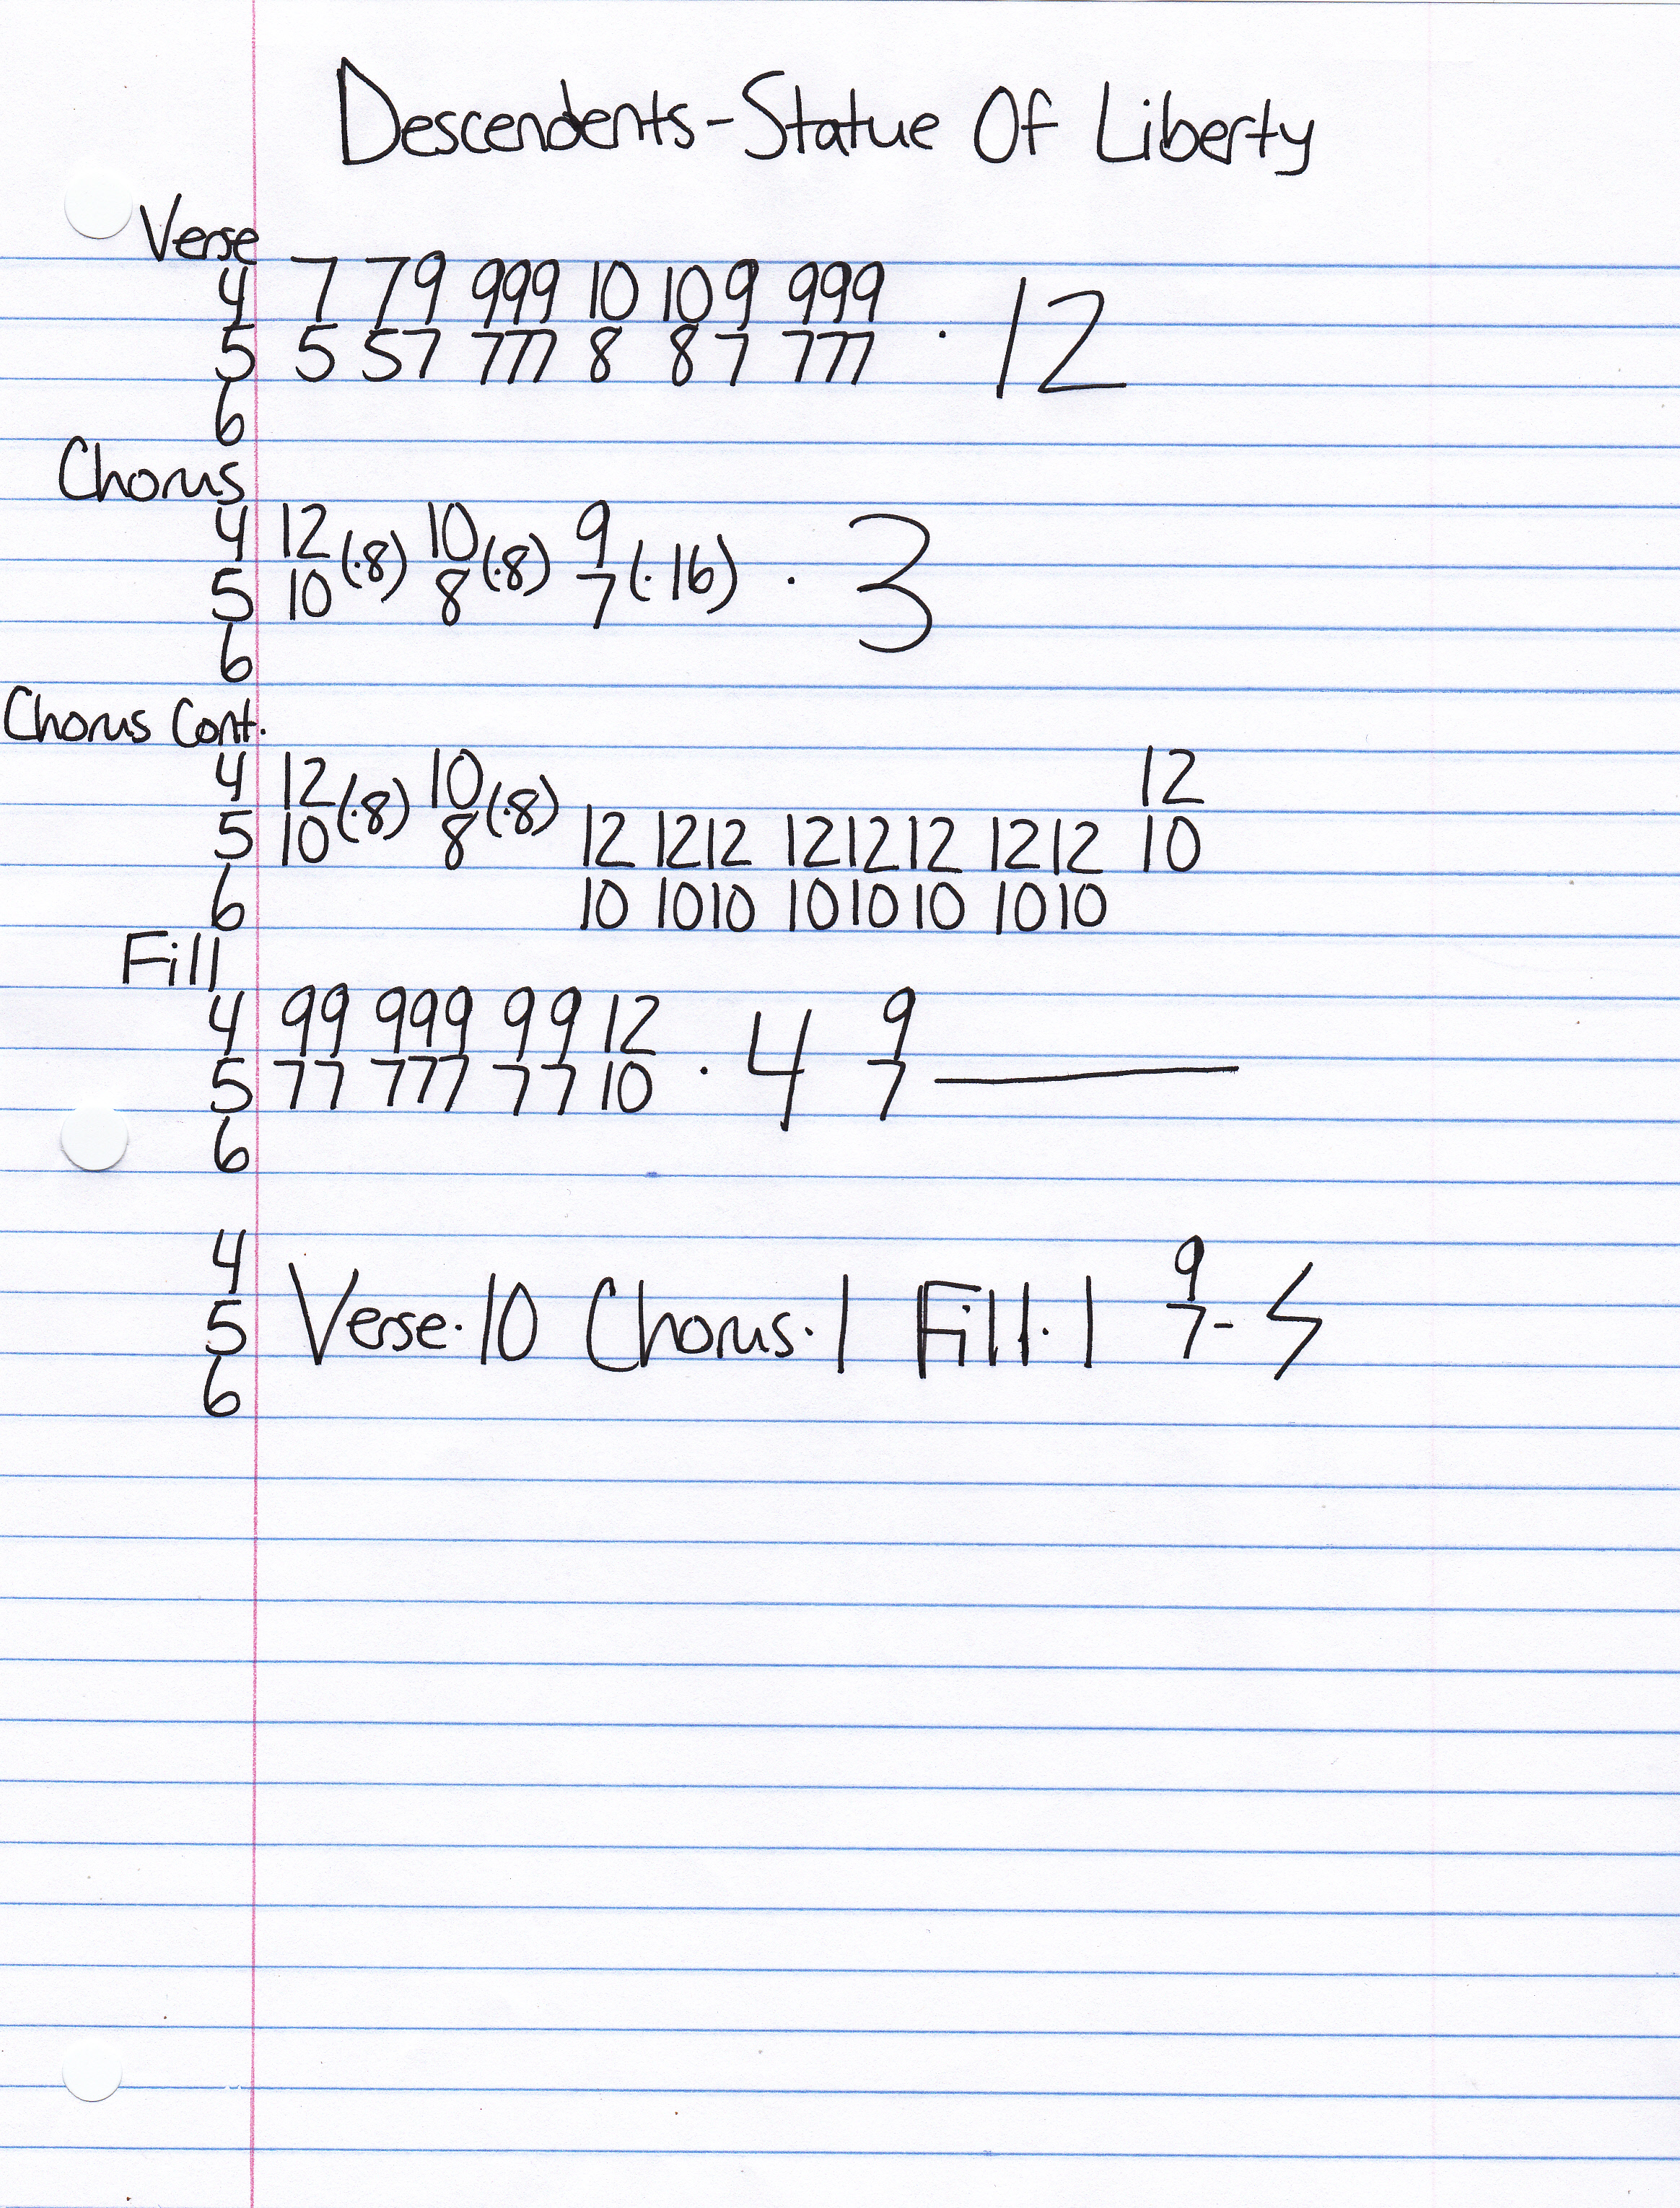 Descendents-Statue Of Liberty
Verse
4 7 79 999 10 109 999
5 5 57 777 8 87 777 · 12
6
Chorus
4 12 (·8) 10 (·8) 9 (·16) · 3
5 10 8 7
6
Chorus Cont.
4 12 (·8) 10 (·8) 12
5 10 8 12 1212 121212 1212 10
6 10 1010 101010 1010
Fill
4 99 999 99 12 · 4 9
5 77 777 77 10 7
6
4 9
5 Verse·10 Chorus·1 Fill·1 7-
6